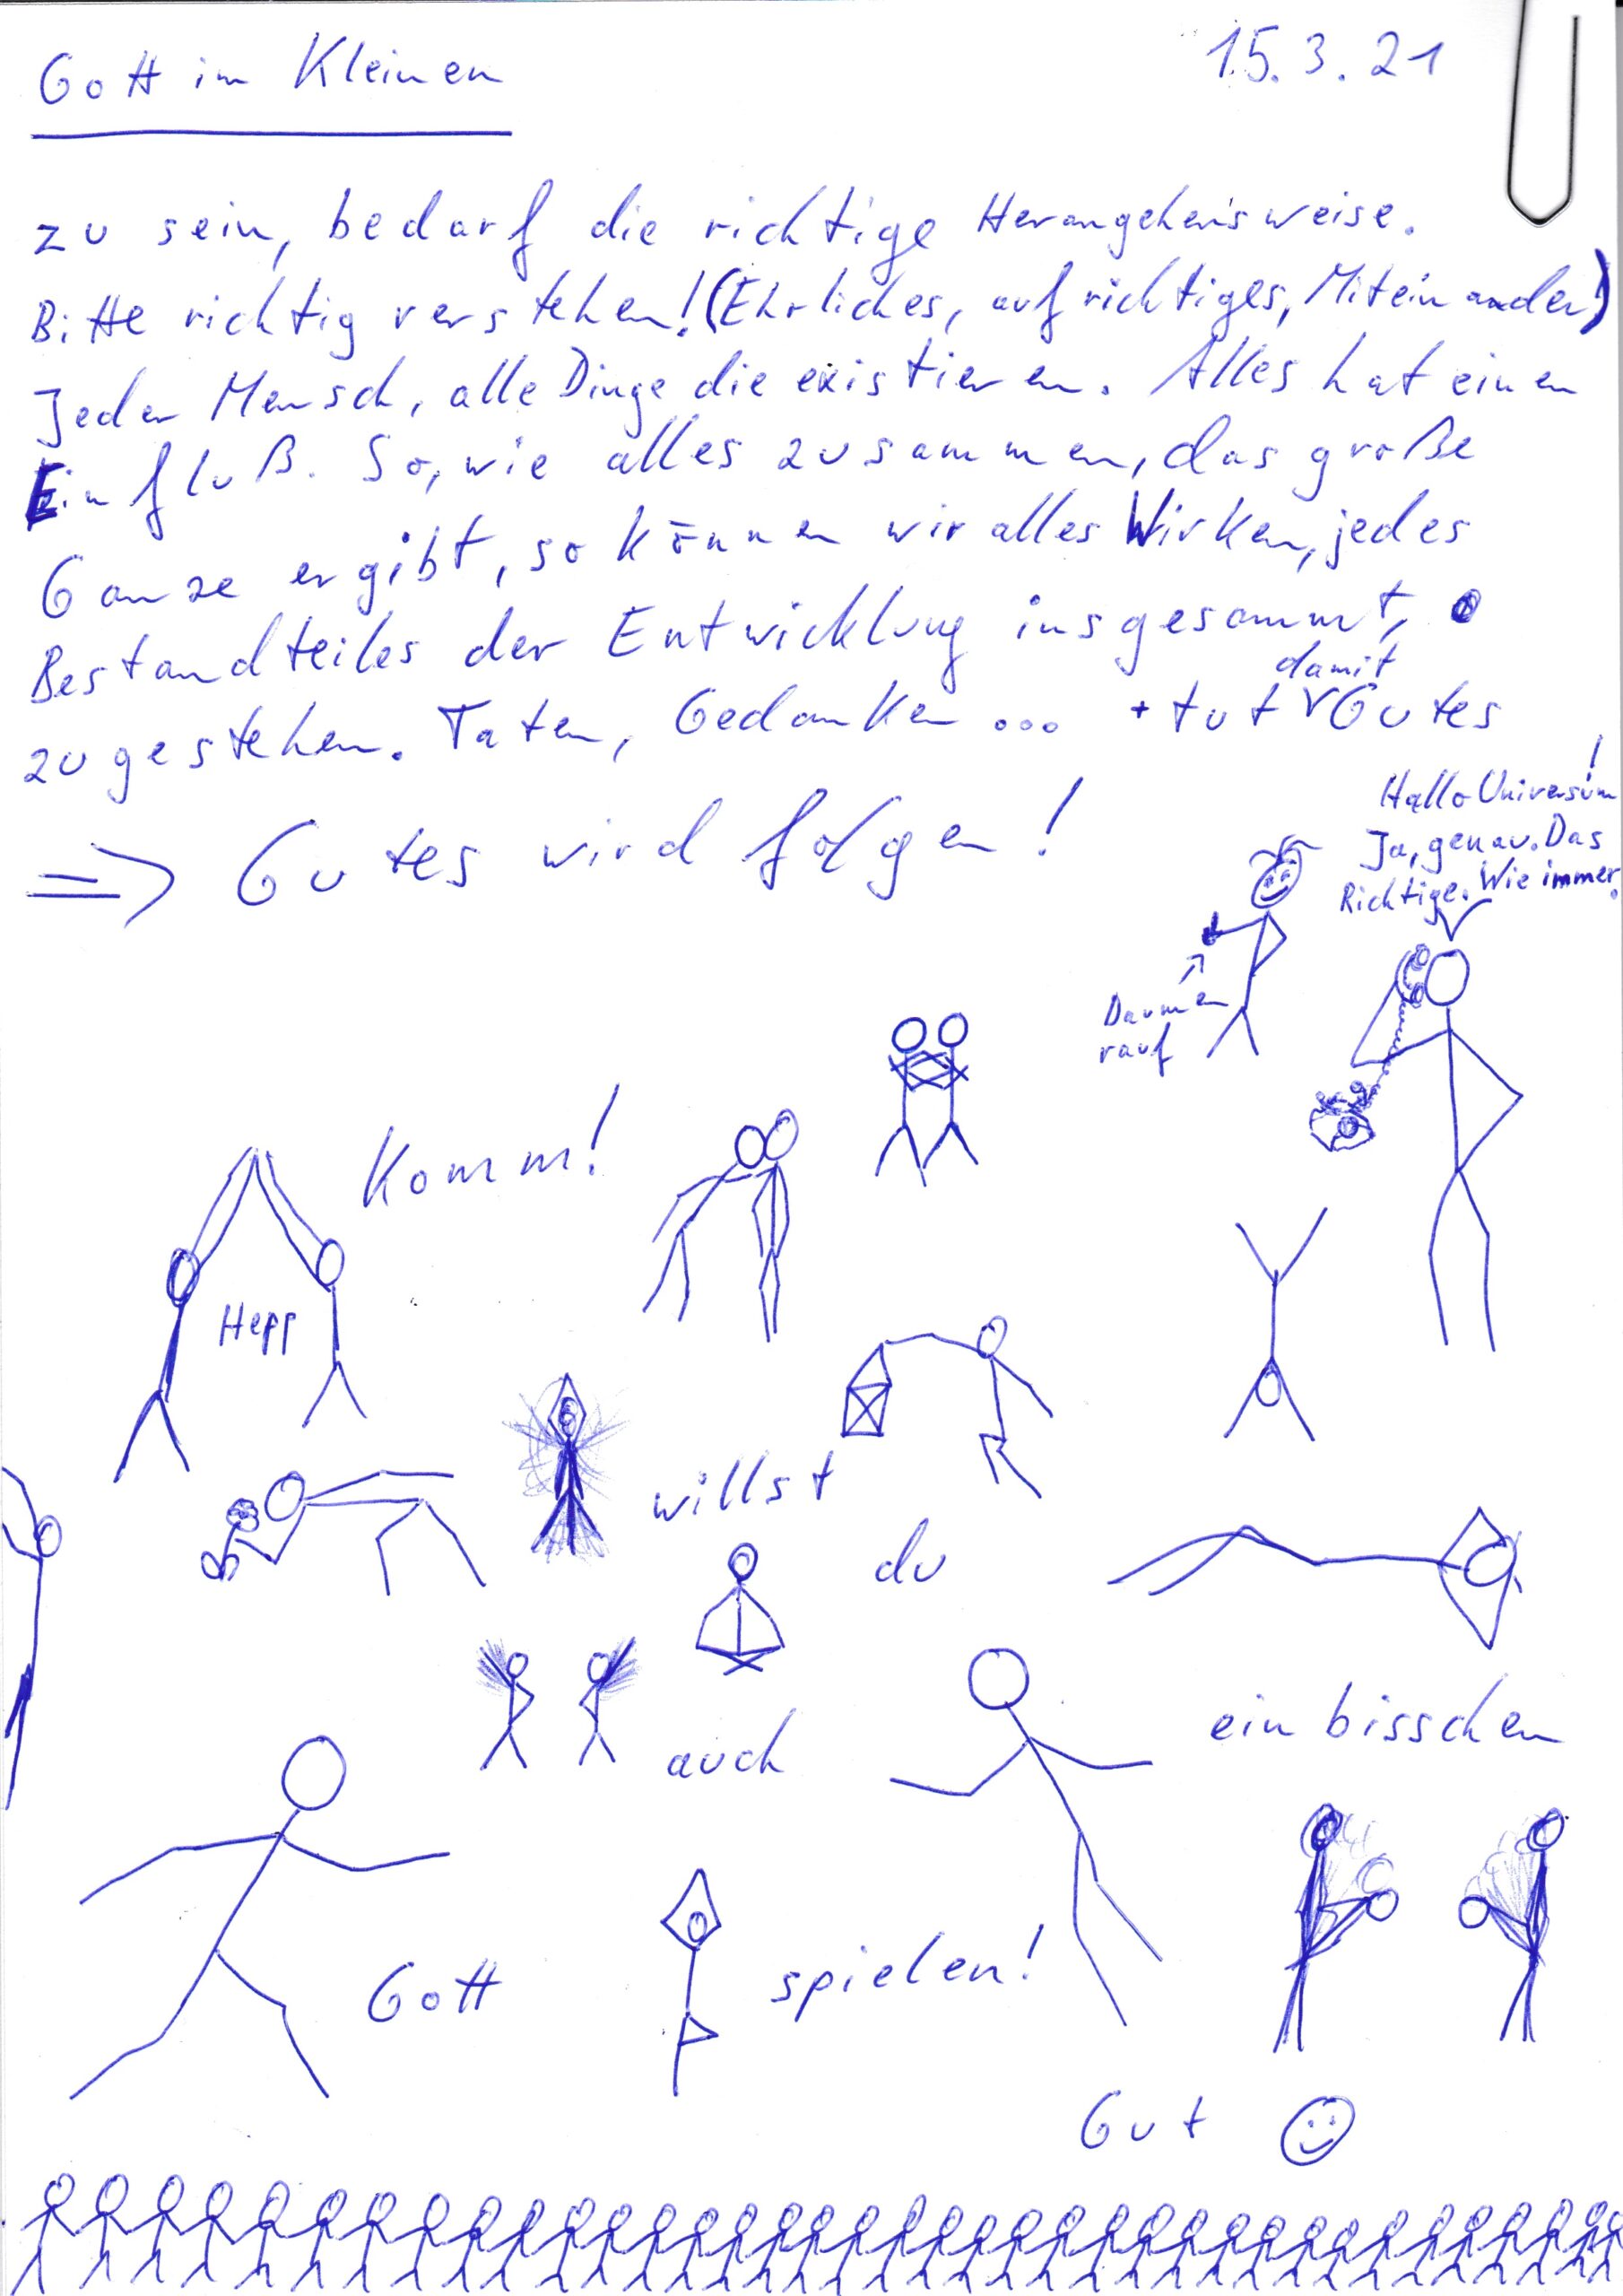 Gott im Kleinen
15.3.21
zu sein, bedarf die richtige Herangehensweise.
Bitte richtig verstehen! (Ehrliches, aufrichtiges, Miteinander!)
Jeder Mensch, alle Dinge die existieren. Alles hat einen
Einfluß. So, wie alles zusammen, das große
Ganze ergibt, so können wir alles Wirken, jedes
Bestandteiles der Entwicklung insgesammt,
damit
zugestehen. Taten, Gedanken ... + tut Gutes
=> Gutes wird folgen!
Hallo Universum!
Ja, genau. Das
Richtige. Wie immer.
Daumen
rauf
Komm!
Hepp
willst
du
auch
ein bisschen
Gott
spielen!
Gut